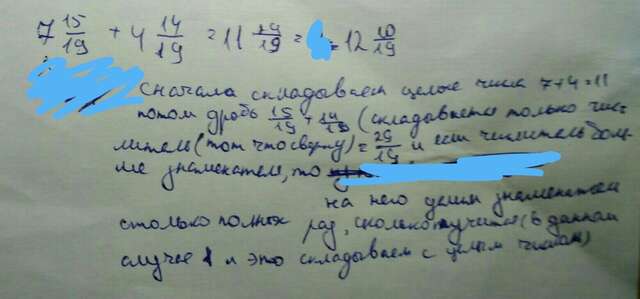 7 15/19 + 4 14/19 = 11 29/19 = = 12 10/19
Сначала складываем целые числа 7+4=11
потом дробь 15/19 + 14/19 (складывается только чис-
литель (тот что сверху) = 29/19 и если числитель боль-
ше знаменателя, то
на него делим знаменателем
столько полных раз, сколько (в данном
случае 1 и это складываем с целым числом)